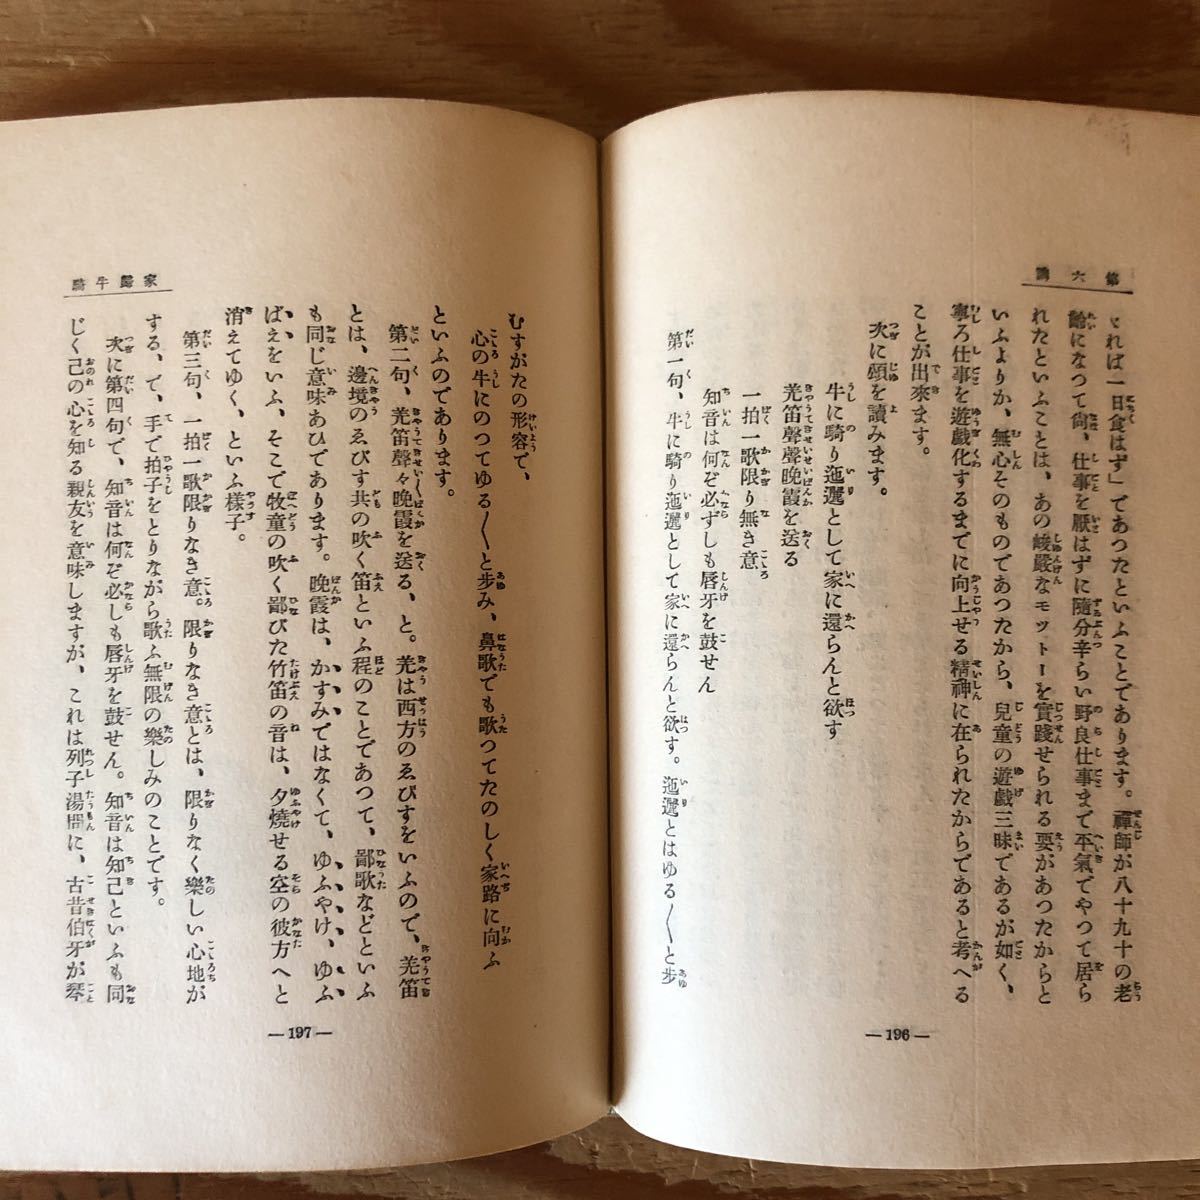 第六講
これば一日食はず」であつたといふことであります。禪師が八十九十の老
齡になつて尙、仕事を厭はずに隨分辛らい野良仕事まで平氣でやつて居ら
れたといふことは、あの峻嚴なモットーを實踐せられる要があつたからと
いふよりか、無心そのものであつたから、兒童の遊戲三昧であるが如く、
寧ろ仕事を遊戲化するまでに向上せる精神に在られたからであると考へる
ことが出來ます。
次に頌を讀みます。
牛に騎り迤邐として家に還らんと欲す
羌笛聲聲晚霞を送る
一拍一歌限り無き意
知音は何ぞ必ずしも唇牙を鼓せん
第一句、牛に騎り迤邐として家に還らんと欲す。迤邐とはゆる〱と步
— 196 —
騎牛歸家
むすがたの形容で、
心の牛にのつてゆる〱と步み、鼻歌でも歌つてたのしく家路に向ふ
といふのであります。
第二句、羌笛聲々晚霞を送る、と。羌は西方のゑびすをいふので、羌笛
とは、邊境のゑびす共の吹く笛といふ程のことであつて、鄙歌などといふ
も同じ意味あひであります。晚霞は、かすみではなくて、ゆふやけ、ゆふ
ばえをいふ、そこで牧童の吹く鄙びた竹笛の音は、夕燒せる空の彼方へと
消えてゆく、といふ樣子。
第三句、一拍一歌限りなき意。限りなき意とは、限りなく樂しい心地が
する、で、手で拍子をとりながら歌ふ無限の樂しみのことです。
次に第四句で、知音は何ぞ必しも唇牙を鼓せん。知音は知己といふも同
じく己の心を知る親友を意味しますが、これは列子湯問に、古昔伯牙が琴
— 197 —